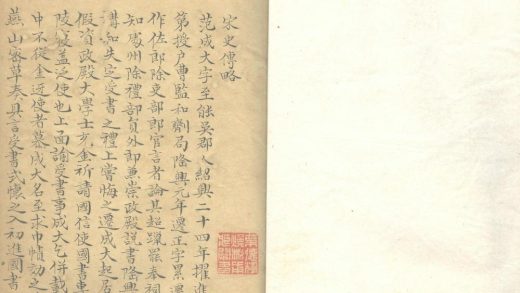 宋史傳略
范成大字至能吳郡人紹興二十四年擢進
第授户曹監和劑局隆興元年遷正字累遷
作佐郎除吏部郎官言者論其超躐罷奉祠
知處州除禮部員外郎兼崇政殿說書隆興
講和失定受書之禮上嘗悔之遷成大起居
假資政殿大學士充金祈請國信使國書專
陵寢蓋泛使也上面諭受書事成大乞併載
中不從金迎使者慕成大名至求巾幘効之
燕山密草奏具言受書式懷之入初進國書